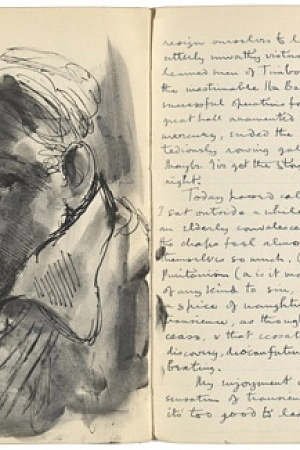 resign ourselves to l
utterly unworthy
learned men of Timbu
the inestimable Ibn Ba
successful operations fo
great hall ornamented
mercury, ended the
tediously rowing gal
Maybe I've got the sto
night.
Today passed cal
I sat outside a while
an elderly convalesce
the chaps feel almo
themselves so much. (
Puritanism (a is it
of any kind to sin,
a spice of naughti
transience, as though
cease, & that
discovery, discomfiture
beating.
My enjoyment
sensation of transien
it's too good to las